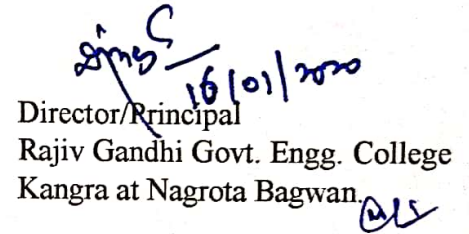 16/01/2020
Director/Principal
Rajiv Gandhi Govt. Engg. College
Kangra at Nagrota Bagwan.